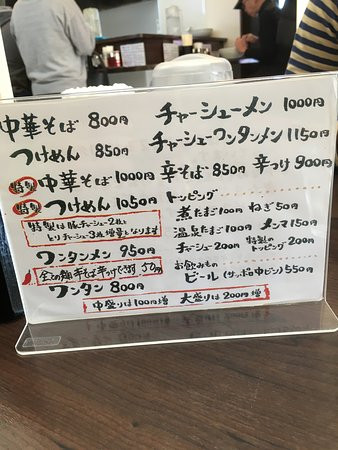 中華そば 800円
つけめん 850円
特製 中華そば 1000円
特製 つけめん 1050円
特製は豚チャーシュー2枚と
とりチャーシュー3枚増量となります
ワンタンメン 950円
全ての麺辛そば辛つけできます 50円
ワンタン 800円
チャーシューメン 1000円
チャーシューワンタンメン 1150円
辛そば 850円 辛つけ 900円
トッピング
煮たまご100円 ねぎ 50円
温泉たまご100円 メンマ 150円
チャーシュー200円 特製のトッピング 200円
お飲みもの
ビール (サッポロ中ビン) 550円
中盛りは100円増 大盛りは200円増